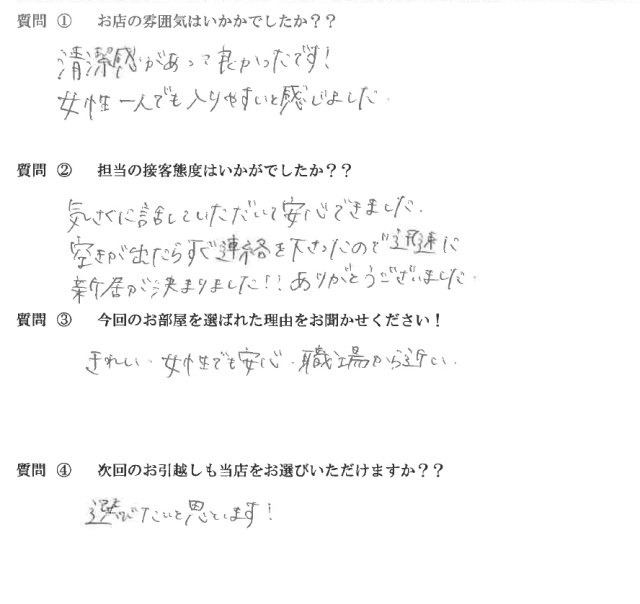 質問 ① お店の雰囲気はいかかでしたか？？
清潔感があって良かったです！
女性一人でも入りやすいと感じました.
質問 ② 担当の接客態度はいかがでしたか？？
気さくに話していただいて安心できました.
空きが出たらすぐ連絡を下さったので迅速に
新居が決まりました！！ありがとうございました.
質問 ③ 今回のお部屋を選ばれた理由をお聞かせください！
きれい・女性でも安心・職場から近い.
質問 ④ 次回のお引越しも当店をお選びいただけますか？？
選びたいと思います！